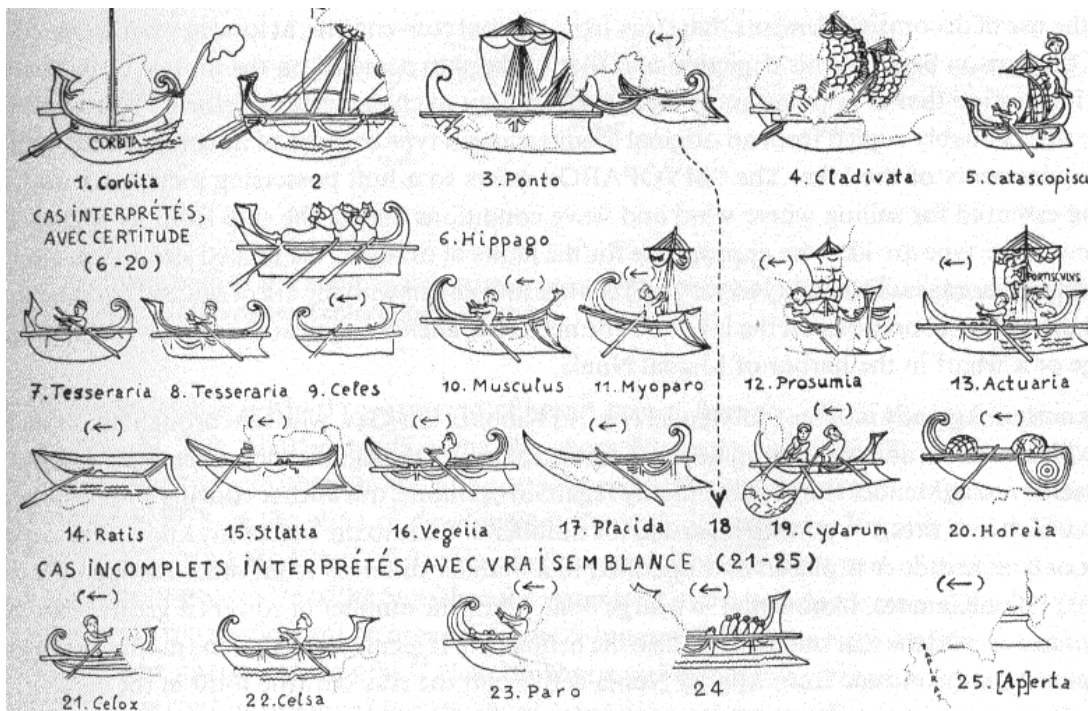 (←)
CORBITA
1. Corbita
2
3. Ponto
4. Cladivata
5.
CAS INTERPRÉTÉS
AVEC CERTITUDE
(6-20)
6. Hippago
(←) (←) (←) (←)
7. Tesseraria
8. Tesseraria
9. Celes
10. Musculus
11. Myoparo
12. Prosumia
13. Actuaria
(←) (←) (←) (←) (←) (←)
14. Ratis
15. Stlatta
16. Vegeiia
17. Placida
18
19.
20. Horeia
CAS INCOMPLETS INTERPRÉTÉS AVEC VRAISEMBLANCE (21-25)
(←) (←) (←) (←)
21. Celox
22. Celsa
23. Paro
24
25. [Ap]erta